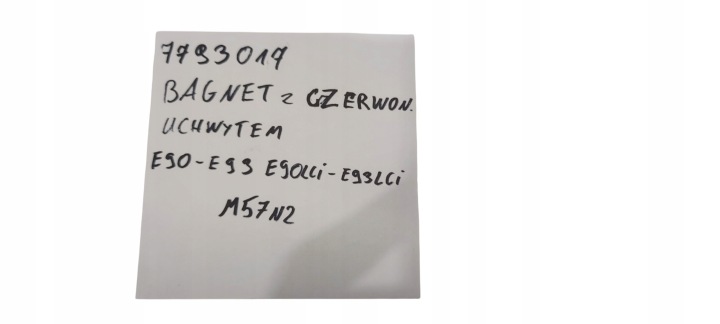 7793017
BAGNET z CZERWON.
UCHWYTEM
E90-E93 E90LCi-E93LCi
M57N2